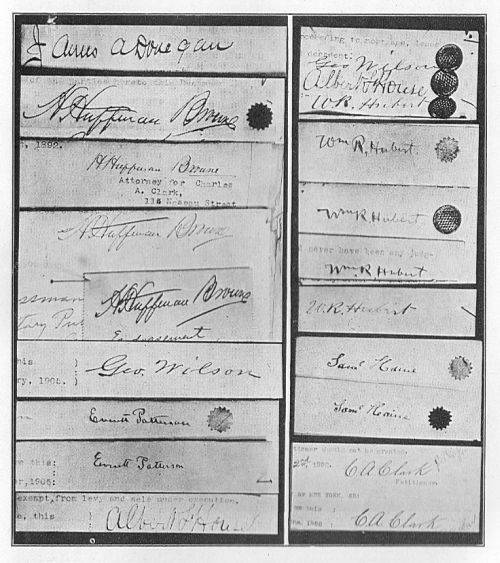 James A Donegan
of
parties
to this
H Huffman Browne
, 1892.
H Huffman Browne
Attorney for Charles
A. Clark,
Nassau Street
H Huffman Browne
ssman
tary Pub
H Huffman Browne
Endorsement
his )
ry, 1905. )
Geo. Wilson
Everett Patterson
this:
,1905:
Everett Patterson
exempt, from levy and sale under execution.
this )
Albert S House
decedent:
Geo Wilson
Albert S House
W.R. Hubert
Wm R. Hubert.
Wm R. Hubert
never have been any judg-
Wm R Hubert
W.R. Hubert
Saml Haine
Saml Haine
should not be granted.
C A Clark
Petitioner.
NEW YORK, SS:
this :
C.A. Clark